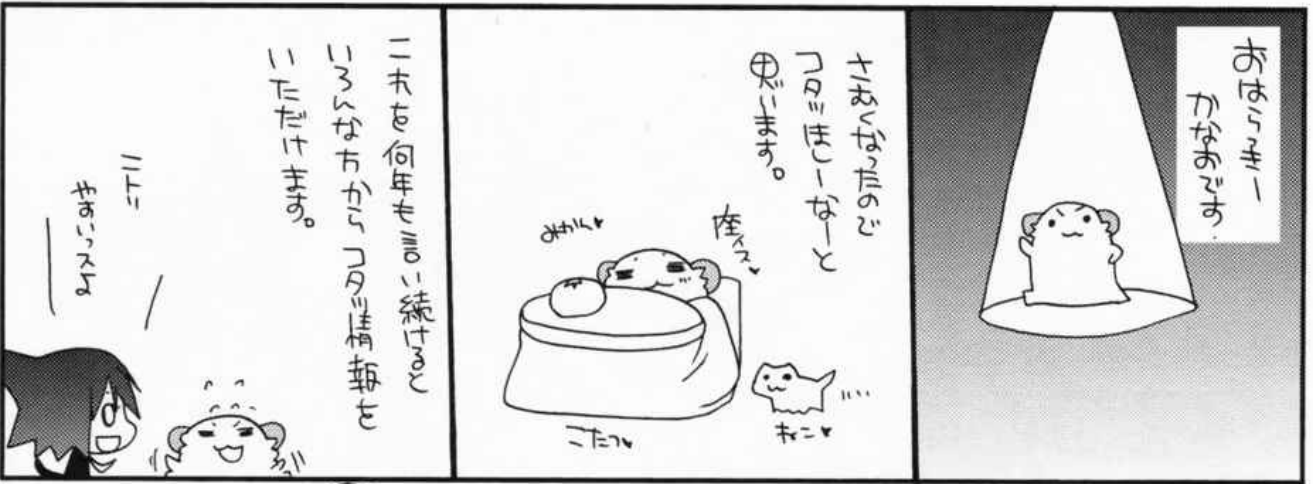 おはらっきー
かなおです.
さむくなったので
コタツほしーなーと
思います。
座イス♥
みかん♥
こたつ♥
ねこ♥
これを何年も言い続けると
いろんな方からコタツ情報を
いただけます。
ニトリ
やすいっスよ